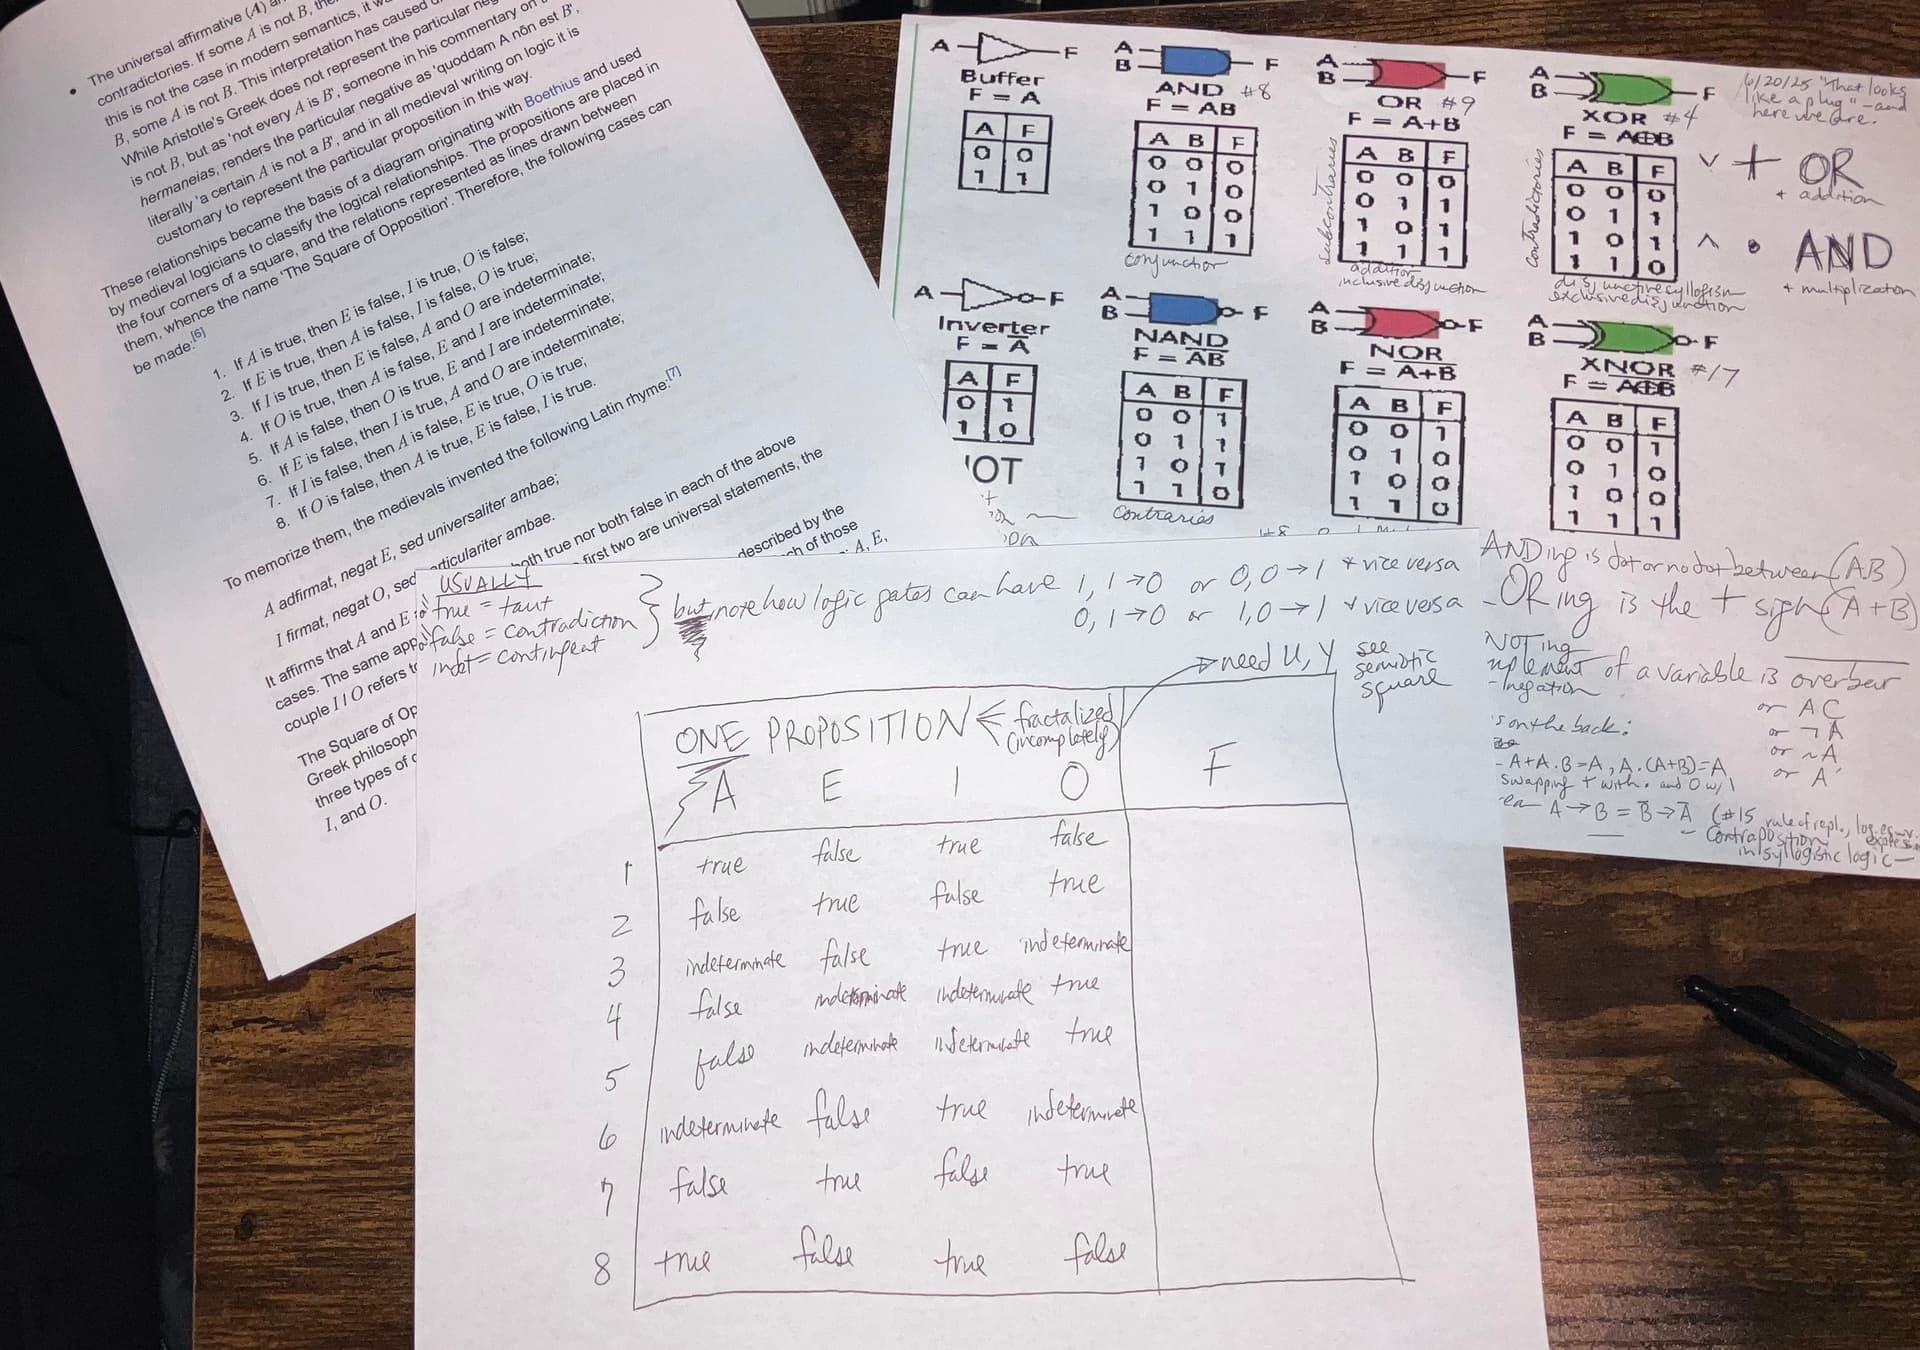 • The universal affirmative (A)
contradictories. If some A is not B,
this is not the case in modern semantics, it
B, some A is not B. This interpretation has caused
While Aristotle's Greek does not represent the particular
is not B, but as 'not every A is B', someone in his commentary on
hermaneias, renders the particular negative as 'quoddam A nōn est B',
literally 'a certain A is not a B', and in all medieval writing on logic it is
customary to represent the particular proposition in this way.
These relationships became the basis of a diagram originating with Boethius and used
by medieval logicians to classify the logical relationships. The propositions are placed in
the four corners of a square, and the relations represented as lines drawn between
them, whence the name 'The Square of Opposition'. Therefore, the following cases can
be made:[6]
1. If A is true, then E is false, I is true, O is false;
2. If E is true, then A is false, I is false, O is true;
3. If I is true, then E is false, A and O are indeterminate;
4. If O is true, then A is false, E and I are indeterminate;
5. If A is false, then O is true, E and I are indeterminate;
6. If E is false, then I is true, A and O are indeterminate;
7. If I is false, then A is false, E is true, O is true;
8. If O is false, then A is true, E is false, I is true.
To memorize them, the medievals invented the following Latin rhyme:[7]
A adfirmat, negat E, sed universaliter ambae;
I firmat, negat O, sed particulariter ambae.
It affirms that A and E
both true nor both false in each of the above
cases. The same
first two are universal statements, the
couple I / O refers
The Square of
described by the
Greek philosoph
of those
three types of
A, E,
I, and O.
A F
Buffer
F = A
A F
0 0
1 1
A B F
AND #8
F = AB
A B F
0 0 0
0 1 0
1 0 0
1 1 1
conjunction
A B F
OR #9
F = A+B
subcontraries
A B F
0 0 0
0 1 1
1 0 1
1 1 1
addition
inclusive disjunction
A B F
XOR #4
F = A⊕B
Contradictories
A B F
0 0 0
0 1 1
1 0 1
1 1 0
disjunctive syllogism
exclusive disjunction
6/20/25 "That looks
like a plug" - and
here we are.
∨ + OR
+ addition
∧ • AND
+ multiplication
A F
Inverter
F = A̅
A F
0 1
1 0
OT
A B F
NAND
F = A̅B̅
A B F
0 0 1
0 1 1
1 0 1
1 1 0
Contraries
A B F
NOR
F = A̅+̅B̅
A B F
0 0 1
0 1 0
1 0 0
1 1 0
A B F
XNOR #17
F = A̅⊕̅B̅
A B F
0 0 1
0 1 0
1 0 0
1 1 1
ANDing is dot or no dot between (AB)
- ORing is the + sign (A+B)
NOTing
uplement of a variable is overbar
- negation
or AC
or ¬A
or ~A
or A'
's on the back:
- A+A·B=A, A·(A+B)=A
swapping + with · and 0 w/ 1
A→B = B̅→A̅ (#15 rule of repl., log. equiv.
- Contraposition expression
in syllogistic logic -
USUALLY
true = taut
false = contradiction
indet = contingent
but note how logic gates can have 1, 1→0 or 0,0→1 + vice versa
0, 1→0 or 1,0→1 + vice versa
need U, Y see
semiotic
square
ONE PROPOSITION ← fractalized
(incompletely)
A E I O F
1 true false true false
2 false true false true
3 indeterminate false true indeterminate
4 false indeterminate indeterminate true
5 false indeterminate indeterminate true
6 indeterminate false true indeterminate
7 false true false true
8 true false true false